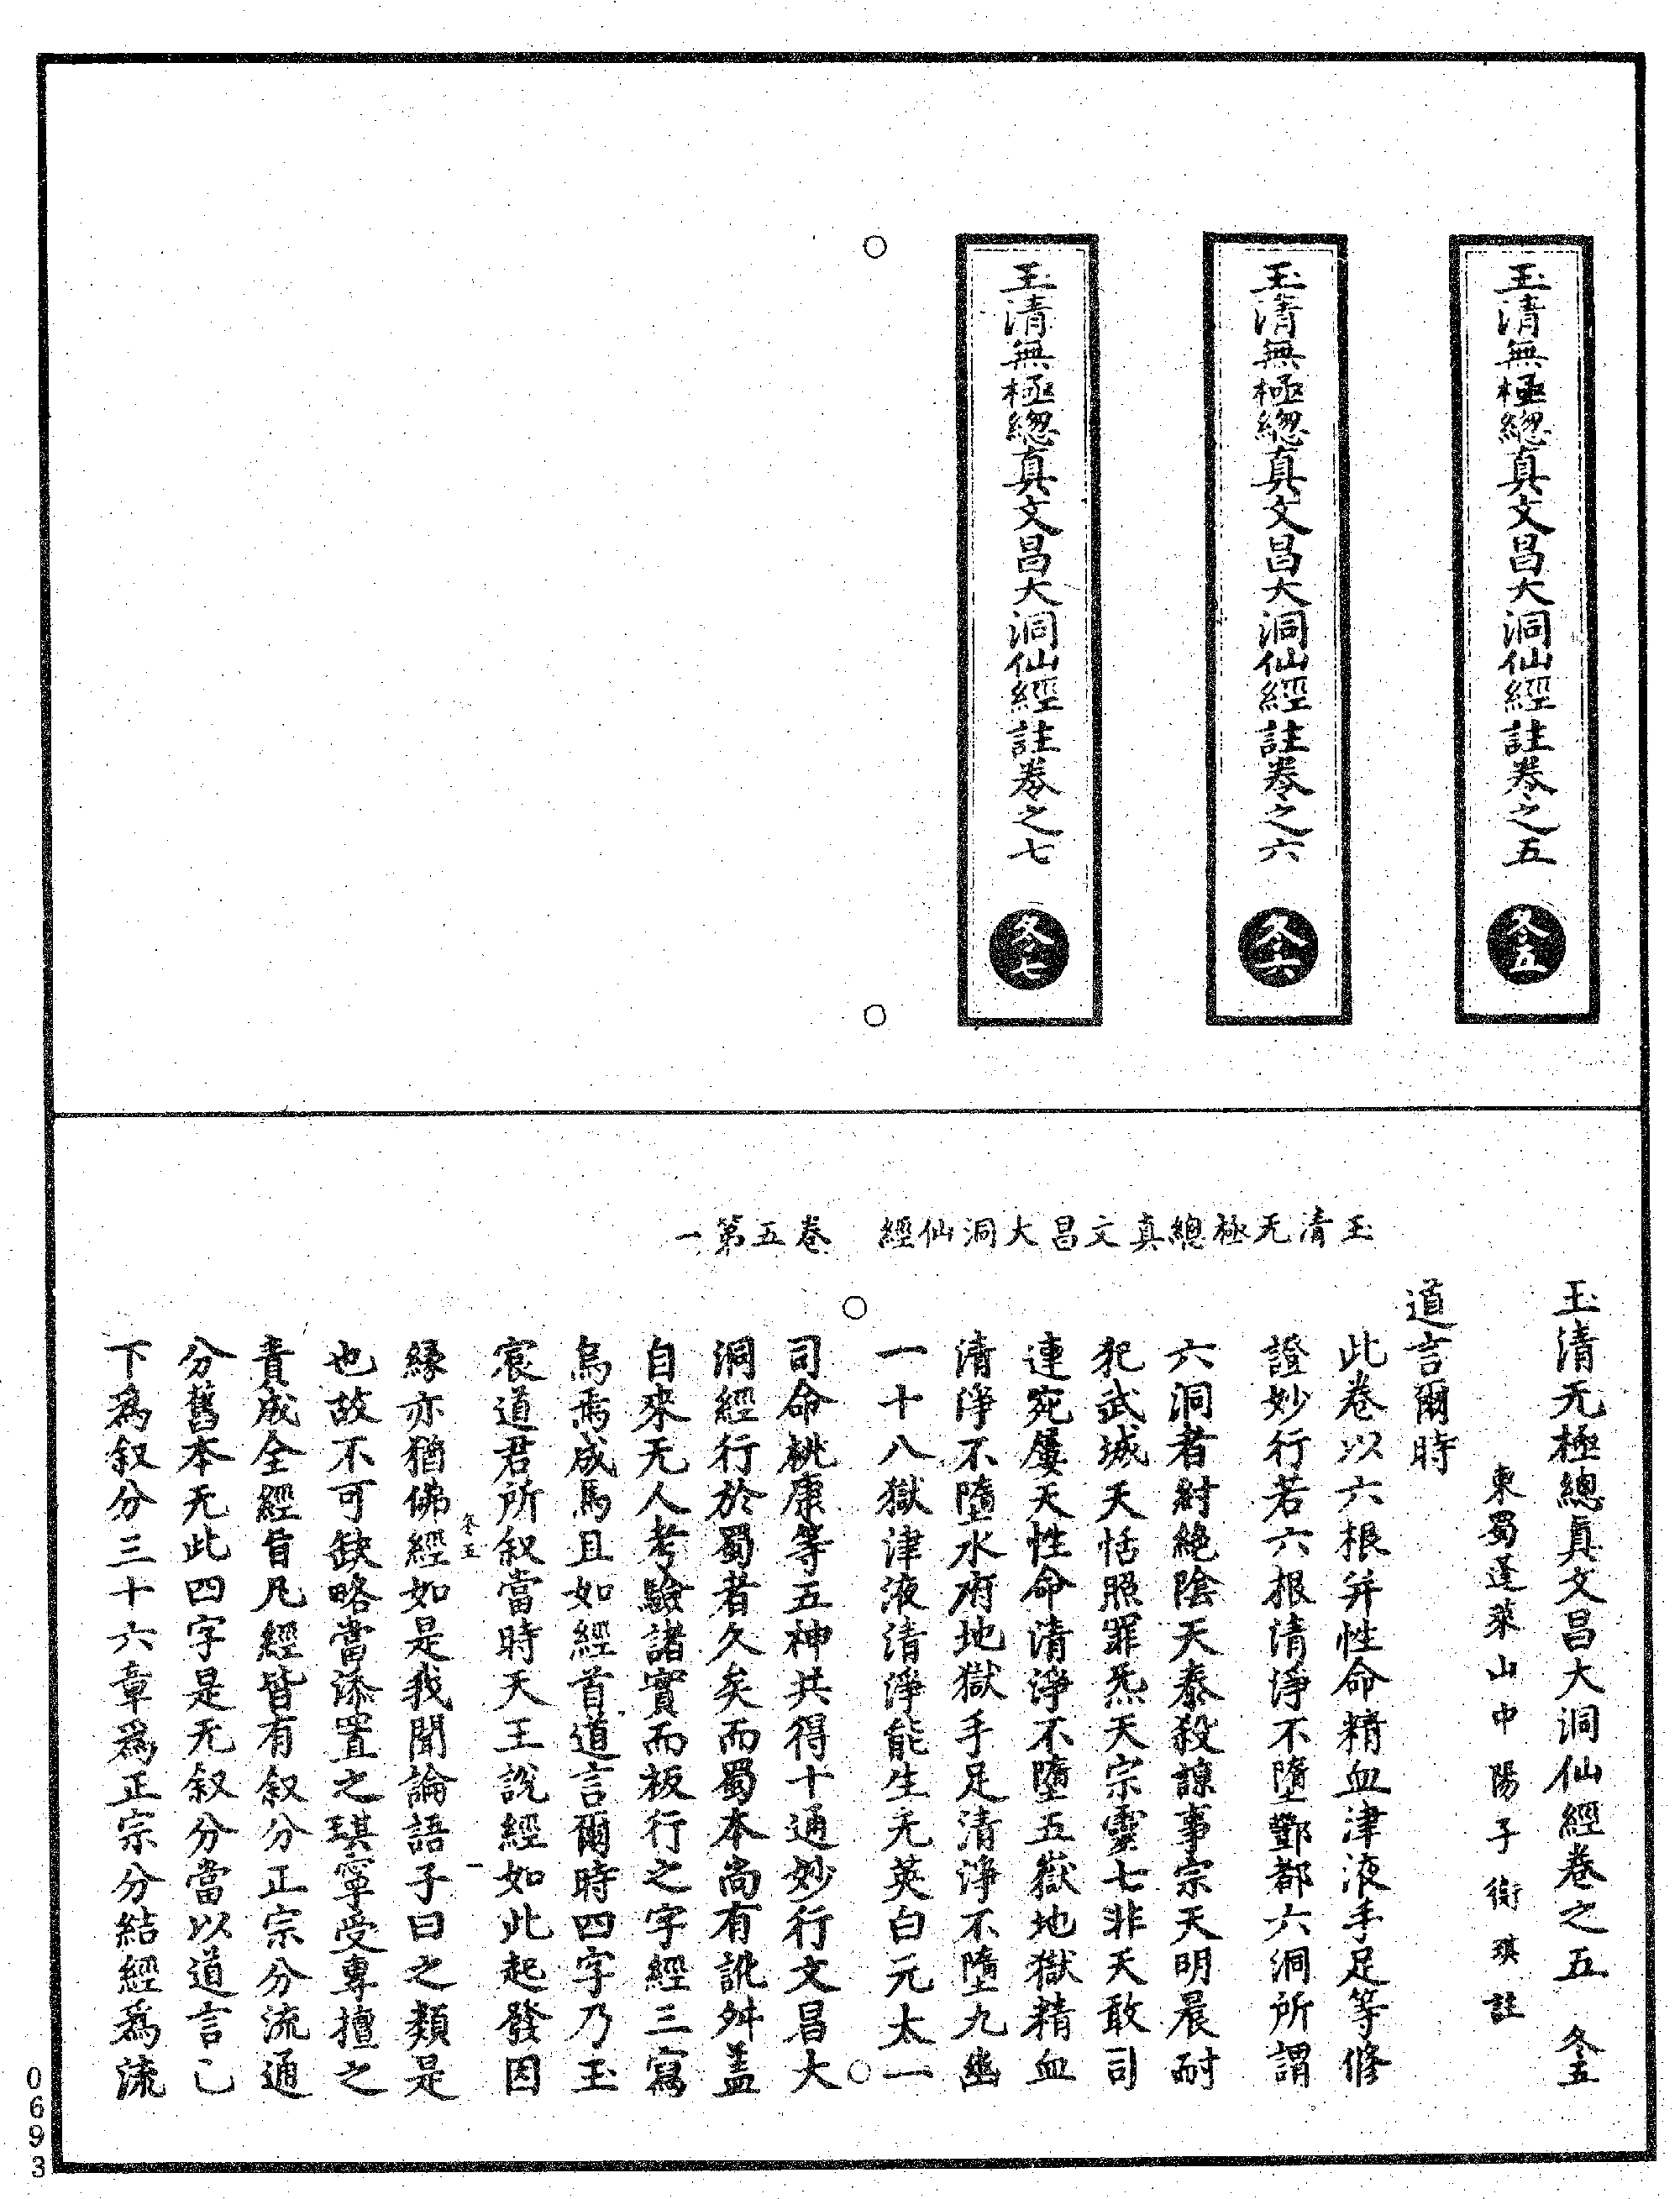 玉清無極總真文昌大洞仙經註卷之五 冬五
玉清無極總真文昌大洞仙經註卷之六 冬六
玉清無極總真文昌大洞仙經註卷之七 冬七
玉清无極總真文昌大洞仙經 卷五第一
玉清无極總真文昌大洞仙經卷之五 冬五
東蜀蓬萊山中陽子衛琪註
道言爾時
此卷以六根并性命精血津液手足等修
證妙行若六根清淨不墮酆都六洞所謂
六洞者紂絕陰天泰殺諒事宗天明晨耐
犯武城天恬照罪炁天宗靈七非天敢司
連宛屢天性命清淨不墮五嶽地獄精血
清淨不墮水府地獄手足清淨不墮九幽
一十八獄津液清淨能生无英白元太一
司命桃康等五神共得十通妙行文昌大
洞經行於蜀者久矣而蜀本尚有訛舛盖
自來无人考驗諸實而板行之字經三寫
烏焉成馬且如經首道言爾時四字乃玉
宸道君所叙當時天王說經如此起發因
緣亦猶佛經如是我聞論語子曰之類是
冬五 一
也故不可缺略當添置之琪寧受專擅之
責成全經旨凡經皆有叙分正宗分流通
分舊本无此四字是无叙分當以道言已
下為叙分三十六章為正宗分結經為流
0693